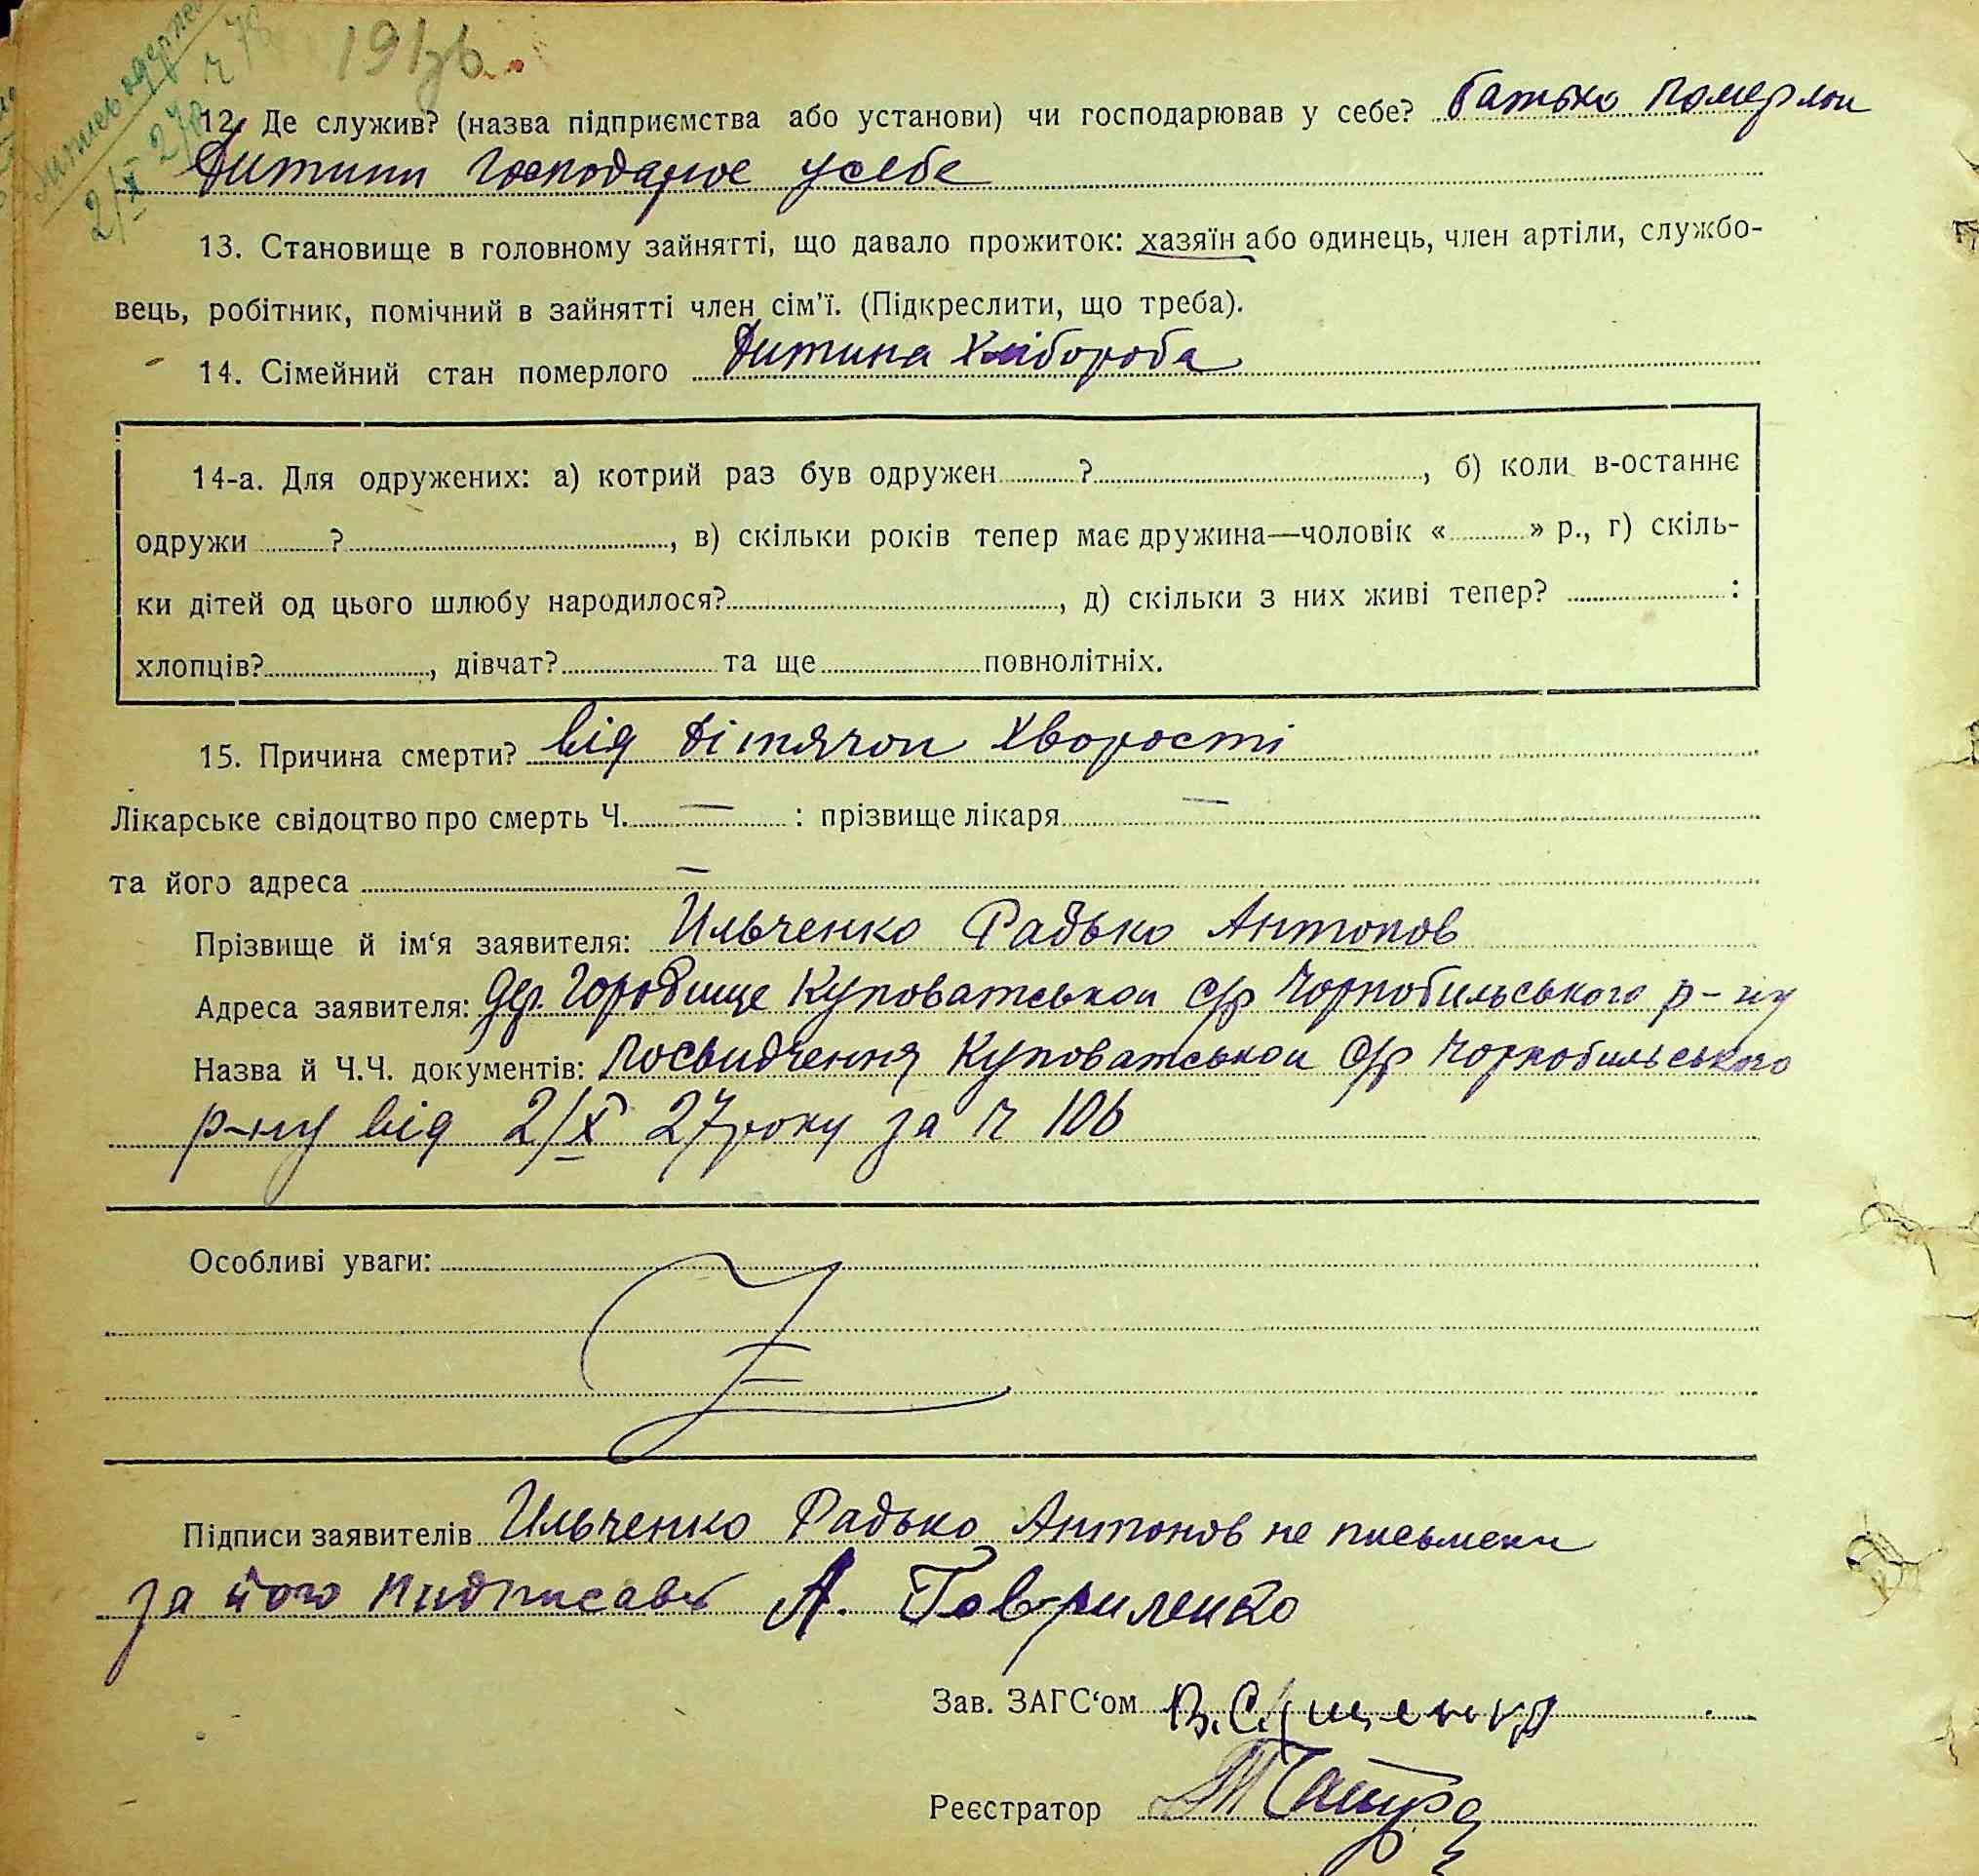 2/X 27р ч 78
12. Де служив? (назва підприємства або установи) чи господарював у себе? батько померлои
Дитини господарює усебе
13. Становище в головному зайнятті, що давало прожиток: хазяїн або одинець, член артіли, службо-
вець, робітник, помічний в зайнятті член сім'ї. (Підкреслити, що треба).
14. Сімейний стан померлого Дитина Хлібороба
14-а. Для одружених: а) котрий раз був одружен ? , б) коли в-останнє
одружи ? , в) скільки років тепер має дружина—чоловік « » р., г) скіль-
ки дітей од цього шлюбу народилося? , д) скільки з них живі тепер? :
хлопців? , дівчат? та ще повнолітніх.
15. Причина смерти? від дітячои Хворости
Лікарське свідоцтво про смерть Ч. — : прізвище лікаря —
та його адреса —
Прізвище й ім‘я заявителя: Ильченко Радько Антонов
Адреса заявителя: дер. Городище Куповатськои с/р Чорнобильського р-ну
Назва й Ч.Ч. документів: Посвидчення Куповатськои с/р Чорнобильського
р-ну від 2/X 27 року за ч 106
Особливі уваги:
Підписи заявителів Ильченко Радько Антонов не письмени
за його пидписавъ А. Гавриленко
Зав. ЗАГС‘ом
Реєстратор